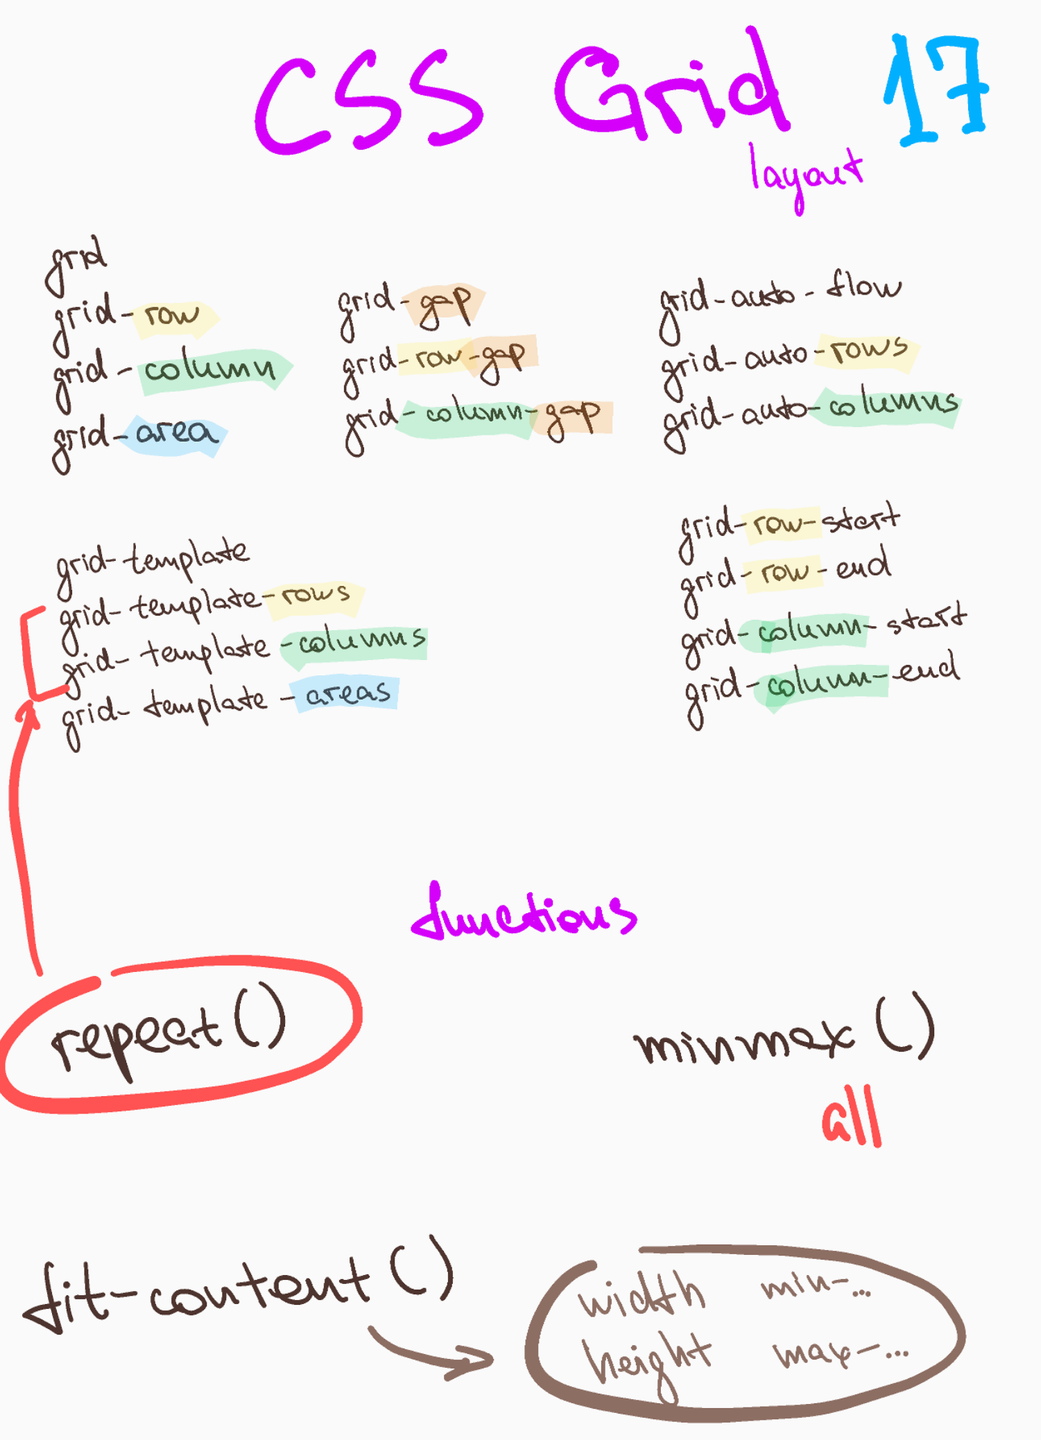 CSS Grid 17
layout
grid
grid-row
grid-column
grid-area
grid-gap
grid-row-gap
grid-column-gap
grid-auto-flow
grid-auto-rows
grid-auto-columns
grid-template
grid-template-rows
grid-template-columns
grid-template-areas
grid-row-start
grid-row-end
grid-column-start
grid-column-end
functions
repeat()
minmax()
all
fit-content()
width min-...
height max-...